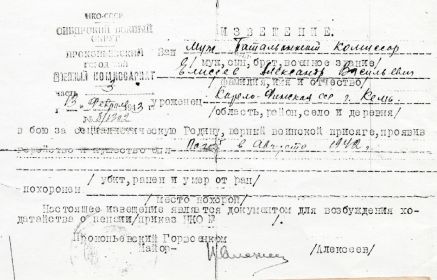 НКО-СССР
СИБИРСКИЙ ВОЕННЫЙ
ОКРУГ
ПРОКОПЬЕВСКИЙ
ГОРОДСКОЙ
ВОЕННЫЙ КОМИССАРИАТ
часть 3
13 февраля 3
№ 8/1302
ИЗВЕЩЕНИЕ.
Ваш Муж Батальонный Комиссар
/муж, сын, брат, военное звание/
Елисеев Александр Васильевич
/фамилия, имя и отчество/
уроженец Карело-Финская сср г. Кемь.
/область, район, село и деревня/
в бою за социалистическую Родину, верный воинской присяге, проявив
геройство и мужество был Погиб в Августе 1942 г
/убит, ранен и умер от ран/
похоронен
/место похорон/
Настоящее извещение является документом для возбуждения хо-
датайства о пенсии/приказ НКО №
Прокопьевский Горвоенком
Майор-
/Алексеев/